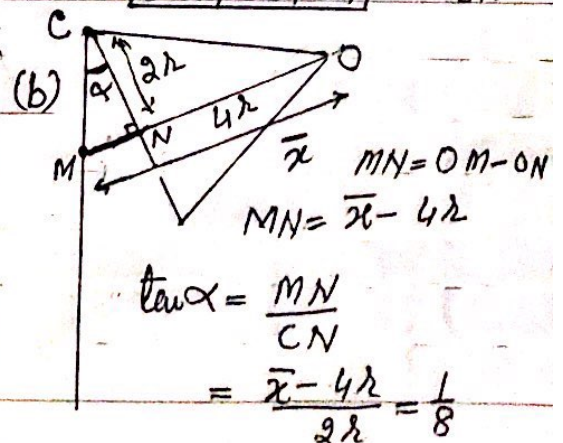 C
2r
O
(b)
α
N
4r
M
x̄
MN = OM - ON
MN = x̄ - 4r
tan α = MN / CN
= x̄ - 4r / 2r = 1 / 8